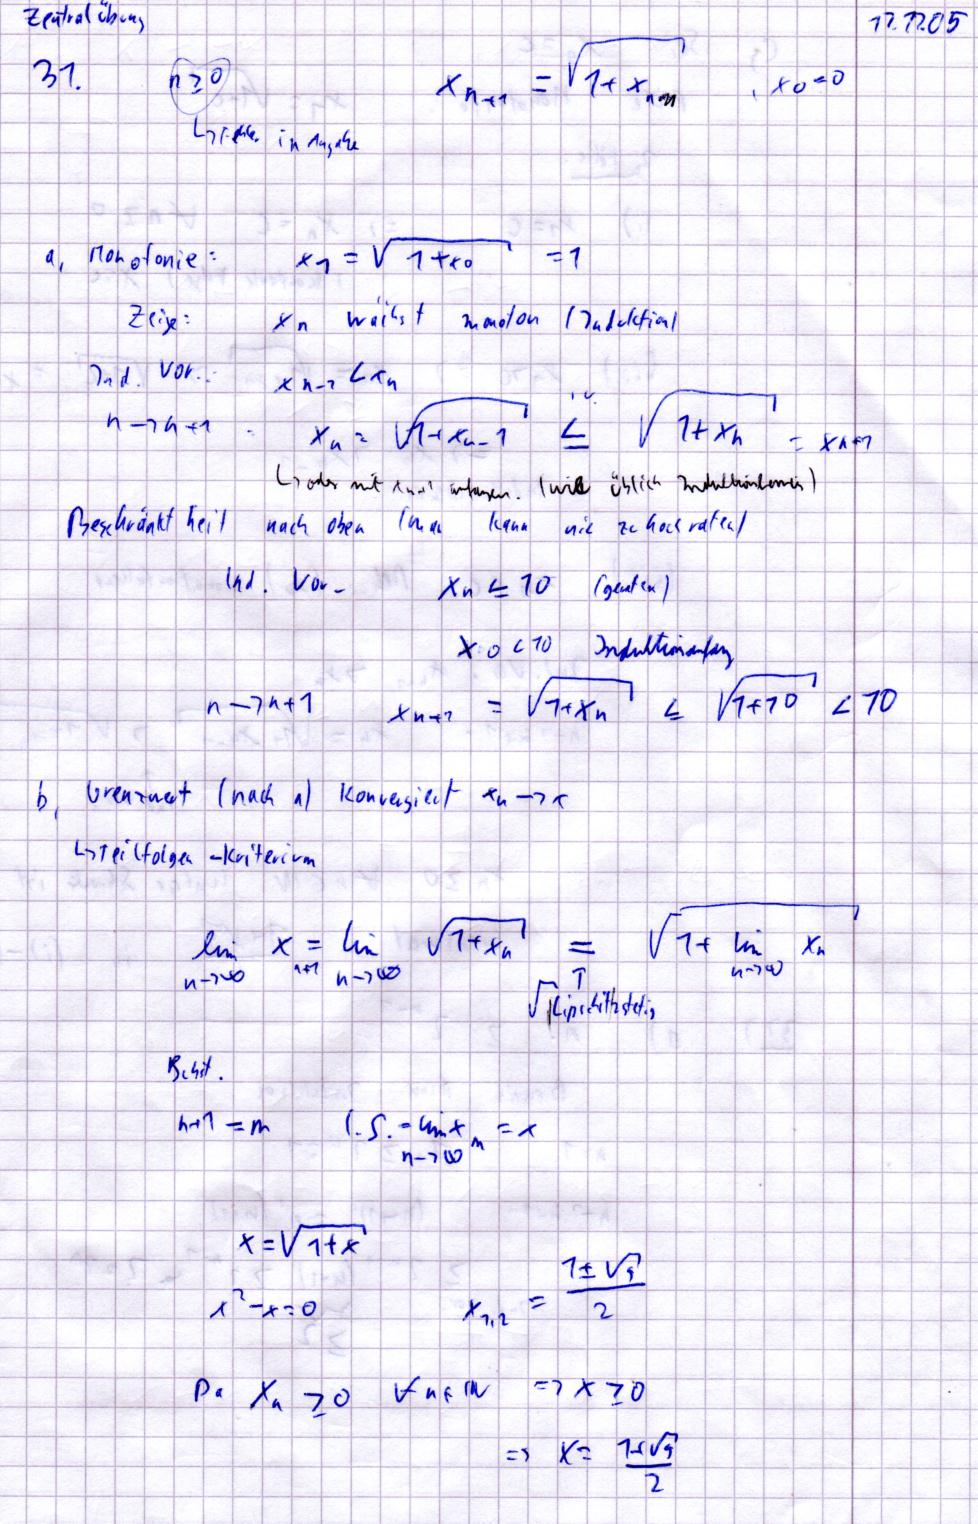 Zentralübung 12.12.05
31. n ≥ 0 x_{n+1} = √(1+x_n) , x_0=0
↳ Fehler in Angabe
a, Monotonie: x_1 = √(1+x_0) = 1
Zeige: x_n wächst monoton (Induktion)
Ind. Vor.: x_{n-1} < x_n
n → n+1 x_n = √(1+x_{n-1}) ≤ √(1+x_n) = x_{n+1}
I.V.
↳ oder mit x_{n+1} anfangen. (wie üblich Induktionsbeweis)
Beschränktheit nach oben (man kann nie zu hoch raten)
Ind. Vor. x_n ≤ 10 (geraten)
x_0 < 10 Induktionsanfang
n → n+1 x_{n+1} = √(1+x_n) ≤ √(1+10) < 10
b, Grenzwert (nach a) konvergiert x_n → x
↳ Teilfolgen-Kriterium
lim_{n→∞} x_{n+1} = lim_{n→∞} √(1+x_n) = √(1+ lim_{n→∞} x_n)
↑
√ Lipschitzstetig
n+1 = m l.S. = lim_{n→∞} x_m = x
x = √(1+x)
x²-x=0 x_{1,2} = (1±√5)/2
Da x_n ≥ 0 ∀ n ∈ ℕ => x ≥ 0
=> x = (1+√5)/2